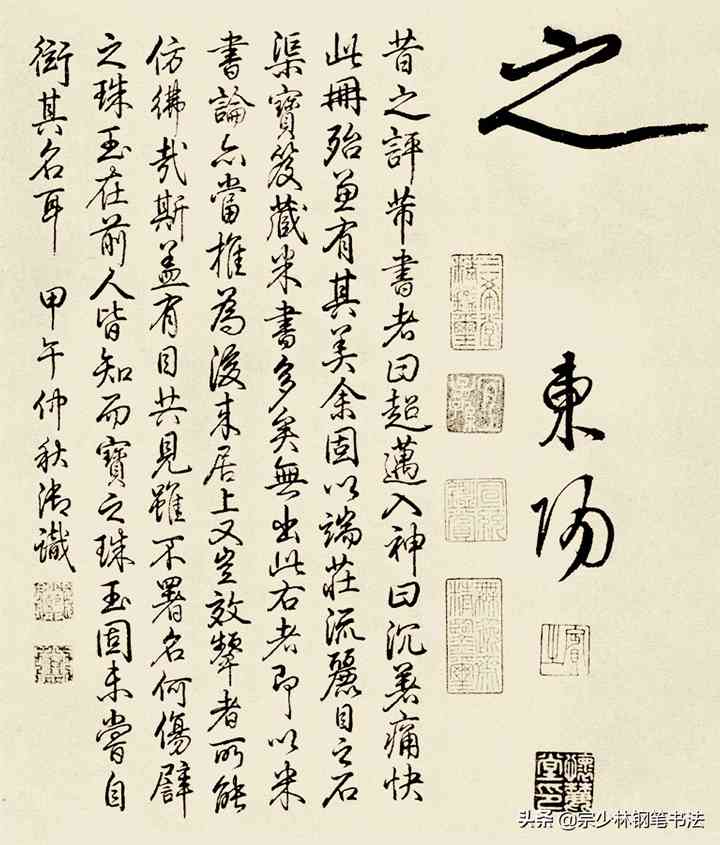 之
東陽
三希堂精鑑璽
宜子孫
昔之評芾書者曰超邁入神曰沉著痛快
此冊殆兼有其美余固以端莊流麗目之石
渠寶笈藏米書多矣無出此右者即以米
書論亦當推為後來居上又豈效顰者所能
仿彿哉斯蓋有目共見雖不署名何傷譬
之珠玉在前人皆知而寶之珠玉固未嘗自
衒其名耳 甲午仲秋御識
头条 @宗少林钢笔书法